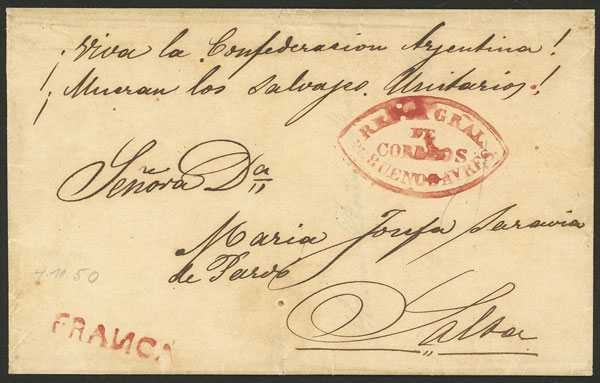 ¡Viva la Confederacion Argentina!
¡Mueran los Salvajes Unitarios!
GRAL.
DE
CORREOS
DE BUENOS AYRES
Señora Da
Maria Josefa Saravia
de Pardo
4.11.50
Salta
FRANCA